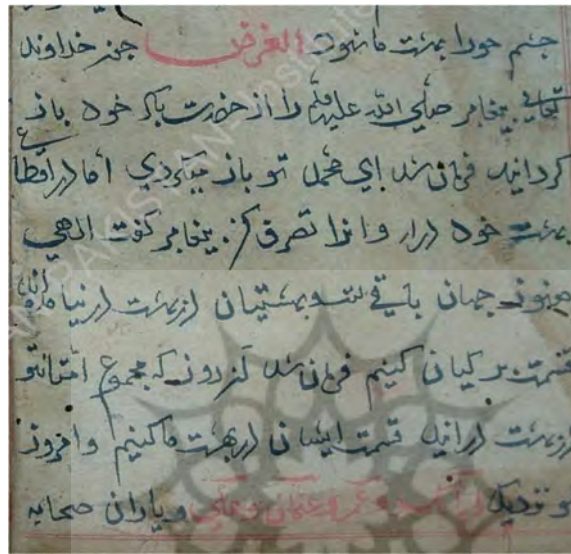 چشم خود را بهشت مانهود الغرض چون خداوند
تعالی پیغامبر صلی الله علیه وسلم را از حضرت پاک خود باز
کردانید فرمان شد ای محمد تو باز میکردی اما در اقطاع
بهشت خود درار و انرا تصرف کن پیغامبر کفت الهی
هنوز جهان باقی بهشتیان در بهشت در نیامده اند
قسمت بر کیان کنیم فرمان شد که مجموع امتان تو
در بهشت درایند قسمت ایشان در بهشت ما کنیم
و نزدیک و عمر و عثمان و علی و یاران صحابه